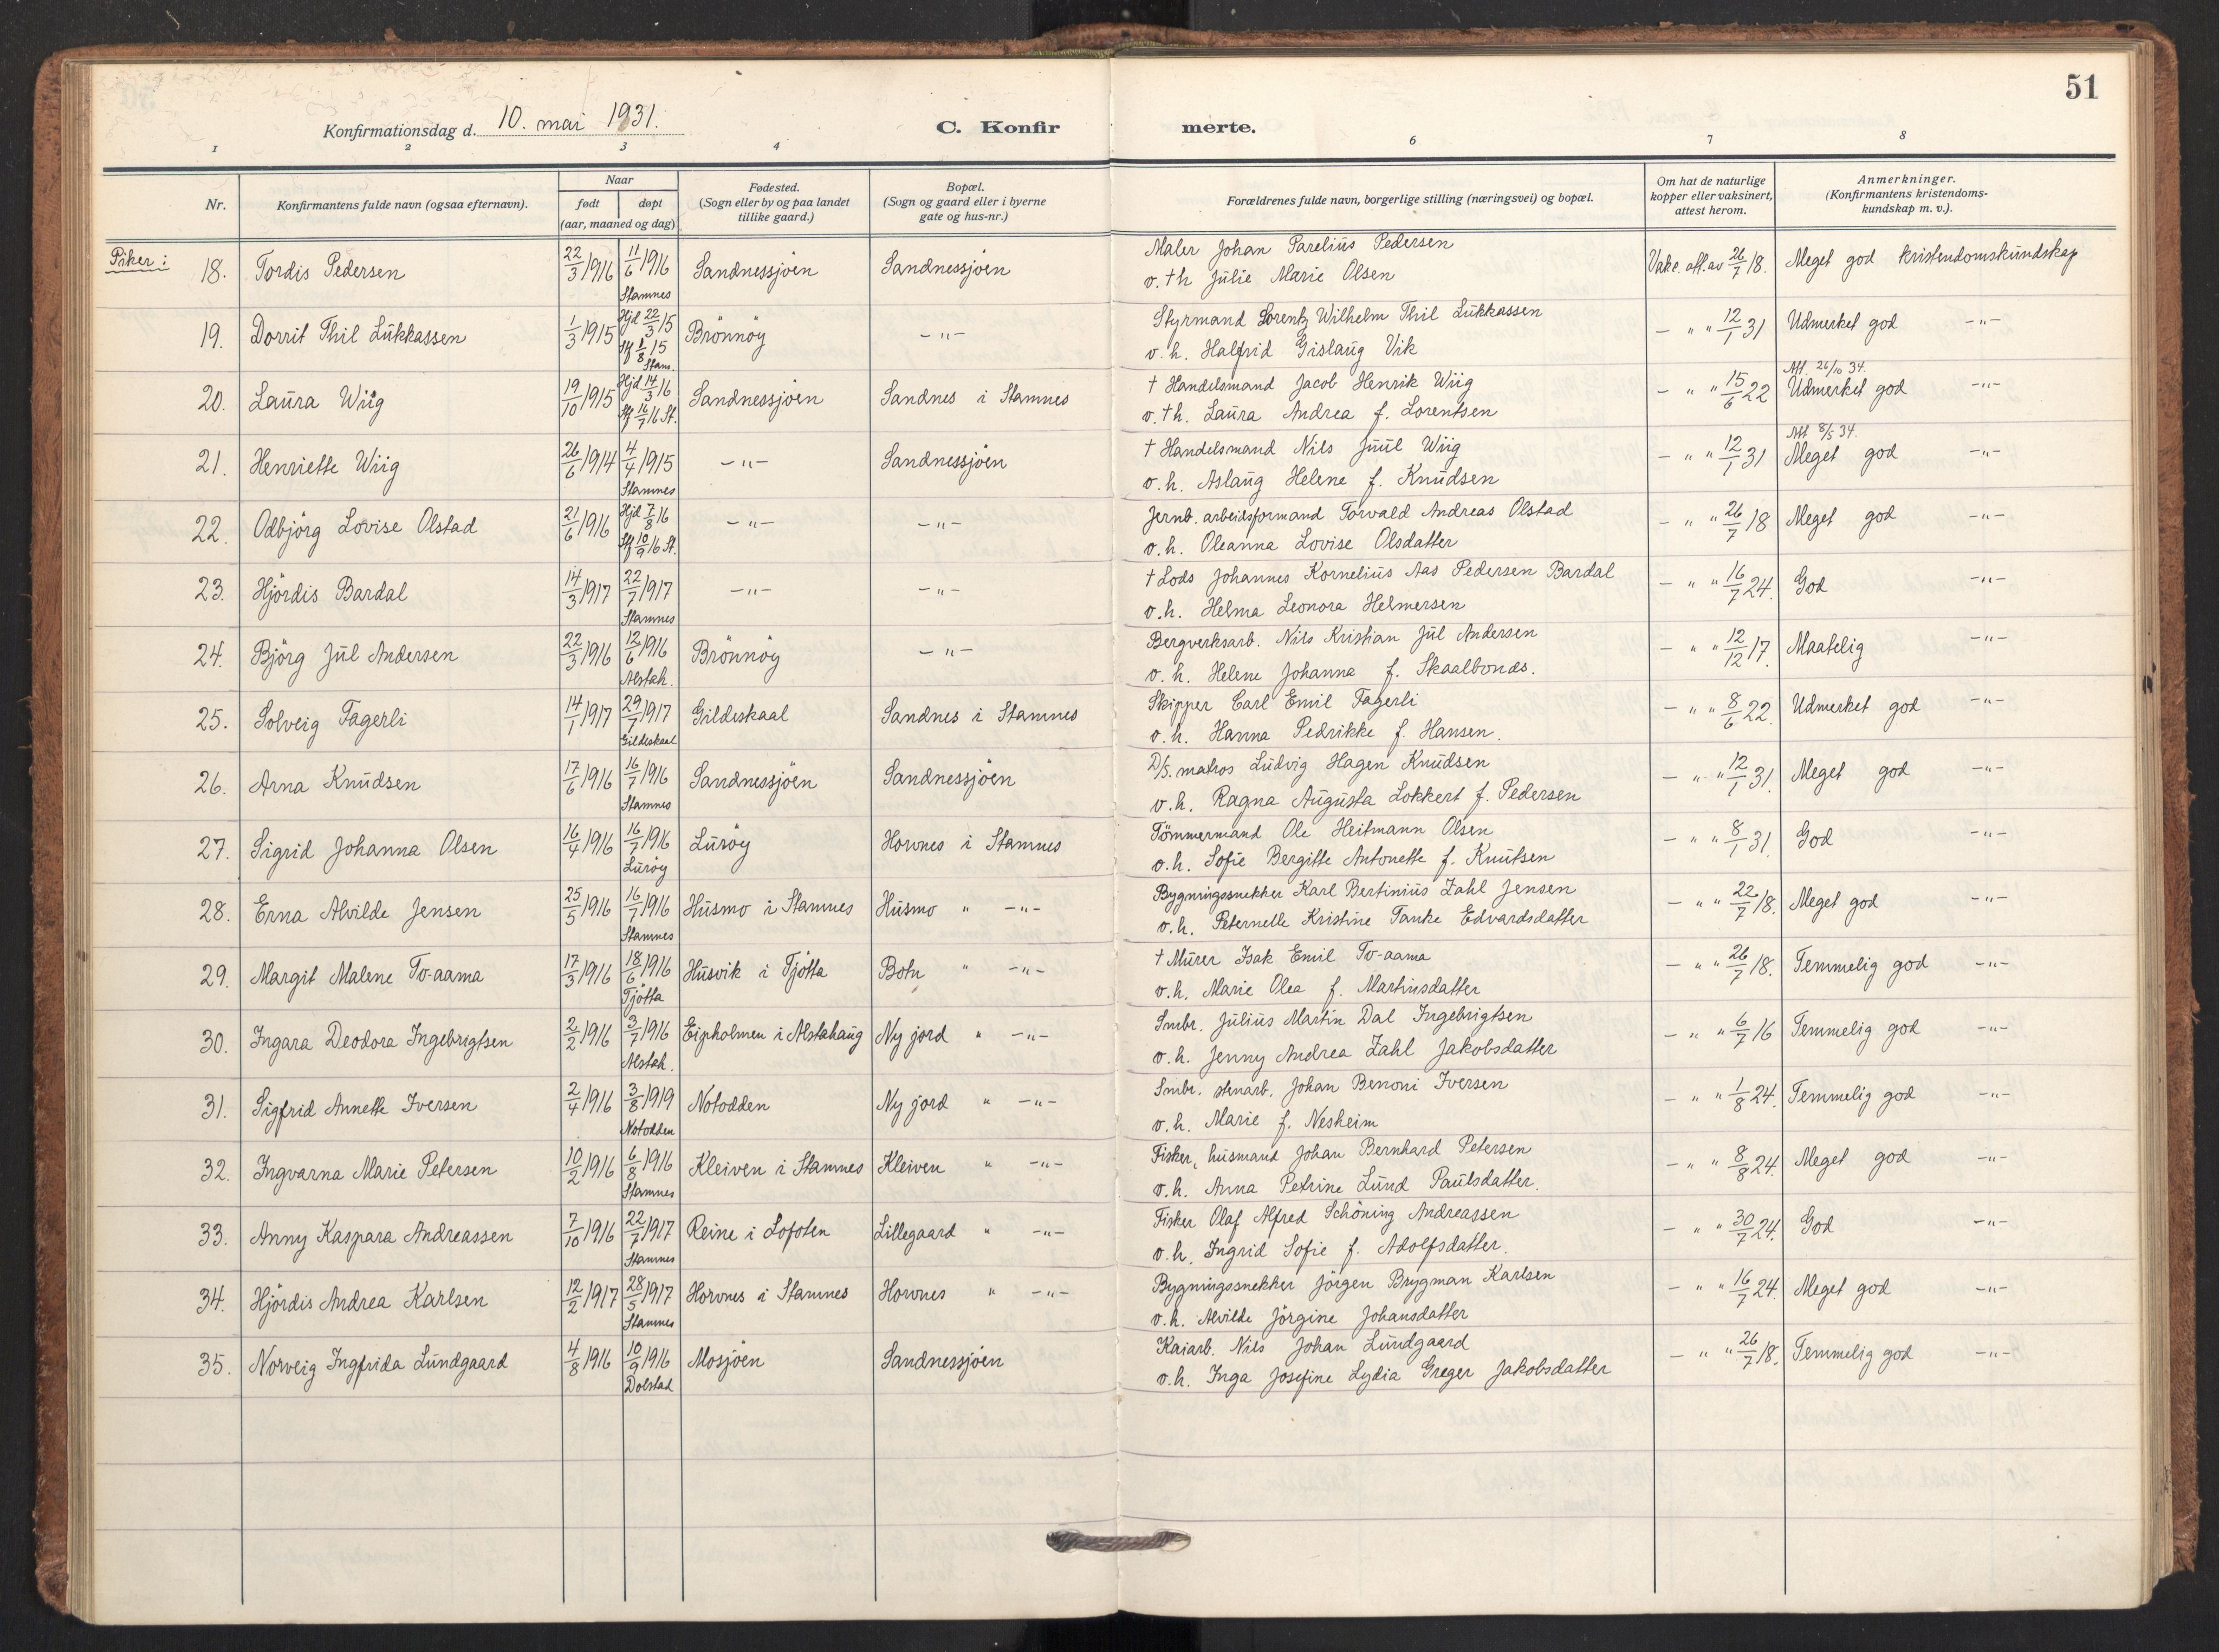 51
Konfirmationsdag d. 10. mai 1931.
C. Konfirmerte.
1 2 3 4 6 7 8
Nr.
Konfirmantens fulde navn (ogsaa efternavn).
Naar
født døpt
(aar, maaned og dag)
Fødested.
(Sogn eller by og paa landet
tillike gaard.)
Bopæl.
(Sogn og gaard eller i byerne
gate og hus-nr.)
Forældrenes fulde navn, borgerlige stilling (næringsvei) og bopæl.
Om hat de naturlige
kopper eller vaksinert,
attest herom.
Anmerkninger.
(Konfirmantens kristendoms-
kundskap m. v.).
Piker:
18. Tordis Pedersen 22/3 1916 11/6 1916 Stamnes Sandnessjöen Sandnessjöen
Maler Johan Parelius Pedersen
o. † h. Julie Marie Olsen
Vakc. att. av 26/7 18. Meget god kristendomskundskap
19. Dorrit Thil Lukkassen 1/3 1915 Hjd 22/3 15 Stf 1/8 15 Stam. Brönnöy -"-
Styrmand Lorentz Wilhelm Thil Lukkassen
o. h. Halfrid Gislaug Vik
- " " 12/1 31 Udmerket god -"-
20. Laura Wiig 19/10 1915 Hjd 14/3 16 Stf 16/7 16 St. Sandnessjöen Sandnes i Stamnes
† Handelsmand Jacob Henrik Wiig
o. † h. Laura Andrea f. Lorentsen
- " " 15/6 22 Att. 26/10 34. Udmerket god -"-
21. Henriette Wiig 26/6 1914 4/4 1915 Stamnes -"- Sandnessjöen
† Handelsmand Nils Juul Wiig
o. h. Aslaug Helene f. Knudsen
- " " 12/1 31 Att 8/5 34. Meget god -"-
22. Odbjörg Lovise Olstad 21/6 1916 Hjd 7/8 16 Stf 10/9 16 St. -"- -"-
Jernb. arbeidsformand Torvald Andreas Olstad
o. h. Oleanna Lovise Olsdatter
- " " 26/7 18 Meget god -"-
23. Hjördis Bardal 14/3 1917 22/7 1917 Stamnes -"- -"-
† Lods Johannes Kornelius Aas Pedersen Bardal
o. h. Helma Leonora Helmersen
- " " 16/7 24. God -"-
24. Björg Jul Andersen 22/3 1916 12/6 1916 Alstah. Brönnöy -"-
Bergverksarb. Nils Kristian Jul Andersen
o. h. Helene Johanna f. Skaalbonds.
- " " 12/12 17. Maatelig -"-
25. Solveig Fagerli 14/1 1917 29/7 1917 Gildeskaal Gildeskaal Sandnes i Stamnes
Skipper Carl Emil Fagerli
o. h. Hanna Pedrikke f. Hansen.
- " " 8/6 22. Udmerket god -"-
26. Arna Knudsen 17/6 1916 16/7 1916 Stamnes Sandnessjöen Sandnessjöen
D/S. matros Ludvig Hagen Knudsen
o. h. Ragna Augusta Lokkert f. Pedersen
- " " 12/1 31. Meget god -"-
27. Sigrid Johanna Olsen 16/4 1916 16/7 1916 Luröy Luröy Horvnes i Stamnes
Tömmermand Ole Heitmann Olsen
o. h. Sofie Bergitte Antonette f. Knutsen
- " " 8/1 31. God -"-
28. Erna Alvilde Jensen 25/5 1916 16/7 1916 Stamnes Husmo i Stamnes Husmo " -"-
Bygningssnekker Karl Bertinius Zahl Jensen
o. h. Peternelle Kristine Tanke Edvardsdatter
- " " 22/7 18. Meget god -"-
29. Margit Malene To-aama 17/3 1916 18/6 1916 Tjötta Husvik i Tjötta Botn " -"-
† Murer Isak Emil To-aama
o. h. Marie Olea f. Martinsdatter
- " " 26/7 18. Temmelig god -"-
30. Ingara Deodora Ingebrigtsen 2/2 1916 3/7 1916 Alstah. i Alstahaug Ny jord " -"-
Smbr. Julius Martin Dal Ingebrigtsen
o. h. Jenny Andrea Zahl Jakobsdatter
- " " 6/7 16 Temmelig god -"-
31. Sigfrid Annette Iversen 2/4 1916 3/8 1919 Notodden Notodden Ny jord " -"-
Smbr. stenarb. Johan Benoni Iversen
o. h. Marie f. Nesheim
- " " 1/8 24. Temmelig god -"-
32. Ingvarna Marie Petersen 10/2 1916 6/8 1916 Stamnes Kleiven i Stamnes Kleiven " -"-
Fisker, husmand Johan Bernhard Petersen
o. h. Anna Petrine Lund Paulsdatter.
- " " 8/8 24. Meget god -"-
33. Anny Kaspara Andreassen 7/10 1916 22/7 1917 Stamnes Reine i Lofoten Lillegaard " -"-
Fisker Olaf Alfred Schöning Andreassen
o. h. Ingrid Sofie f. Adolfsdatter.
- " " 30/7 24. God -"-
34. Hjördis Andrea Karlsen 12/2 1917 28/5 1917 Stamnes Horvnes i Stamnes Horvnes " -"-
Bygningssnekker Jörgen Brygman Karlsen
o. h. Alvilde Jörgine Johansdatter
- " " 16/7 24. Meget god -"-
35. Norveig Ingfrida Lundgaard 4/8 1916 10/9 1916 Dolstad Mosjöen Sandnessjöen
Kaiarb. Nils Johan Lundgaard
o. h. Inga Josefine Lydia Greger Jakobsdatter
- " " 26/7 18. Temmelig god -"-